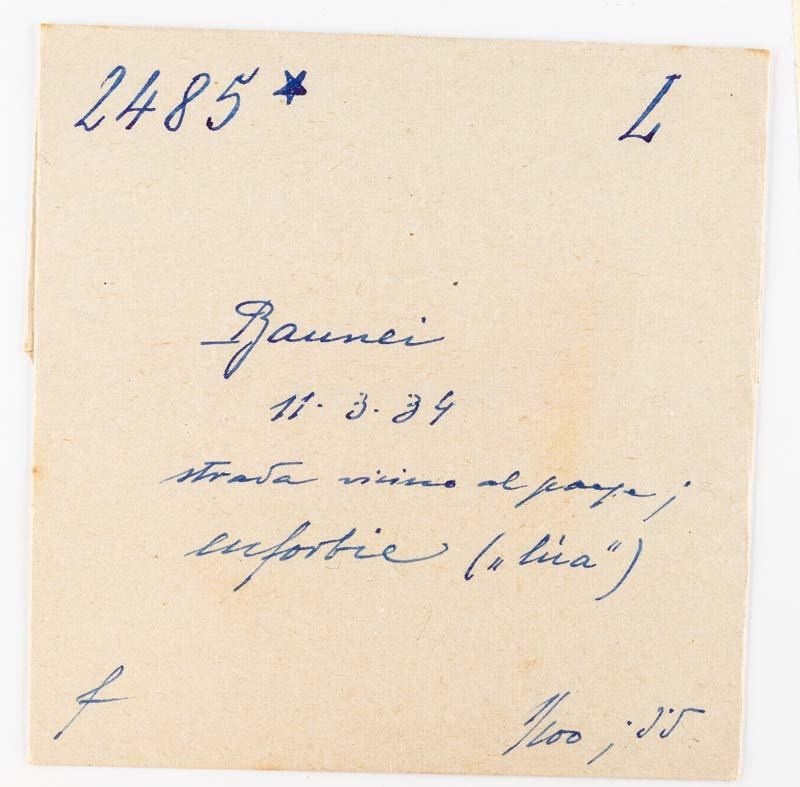 2485* L
Baunei
11.3.34
strada vicino al paese;
euforbie („lúa")
f 1/100 ; 35